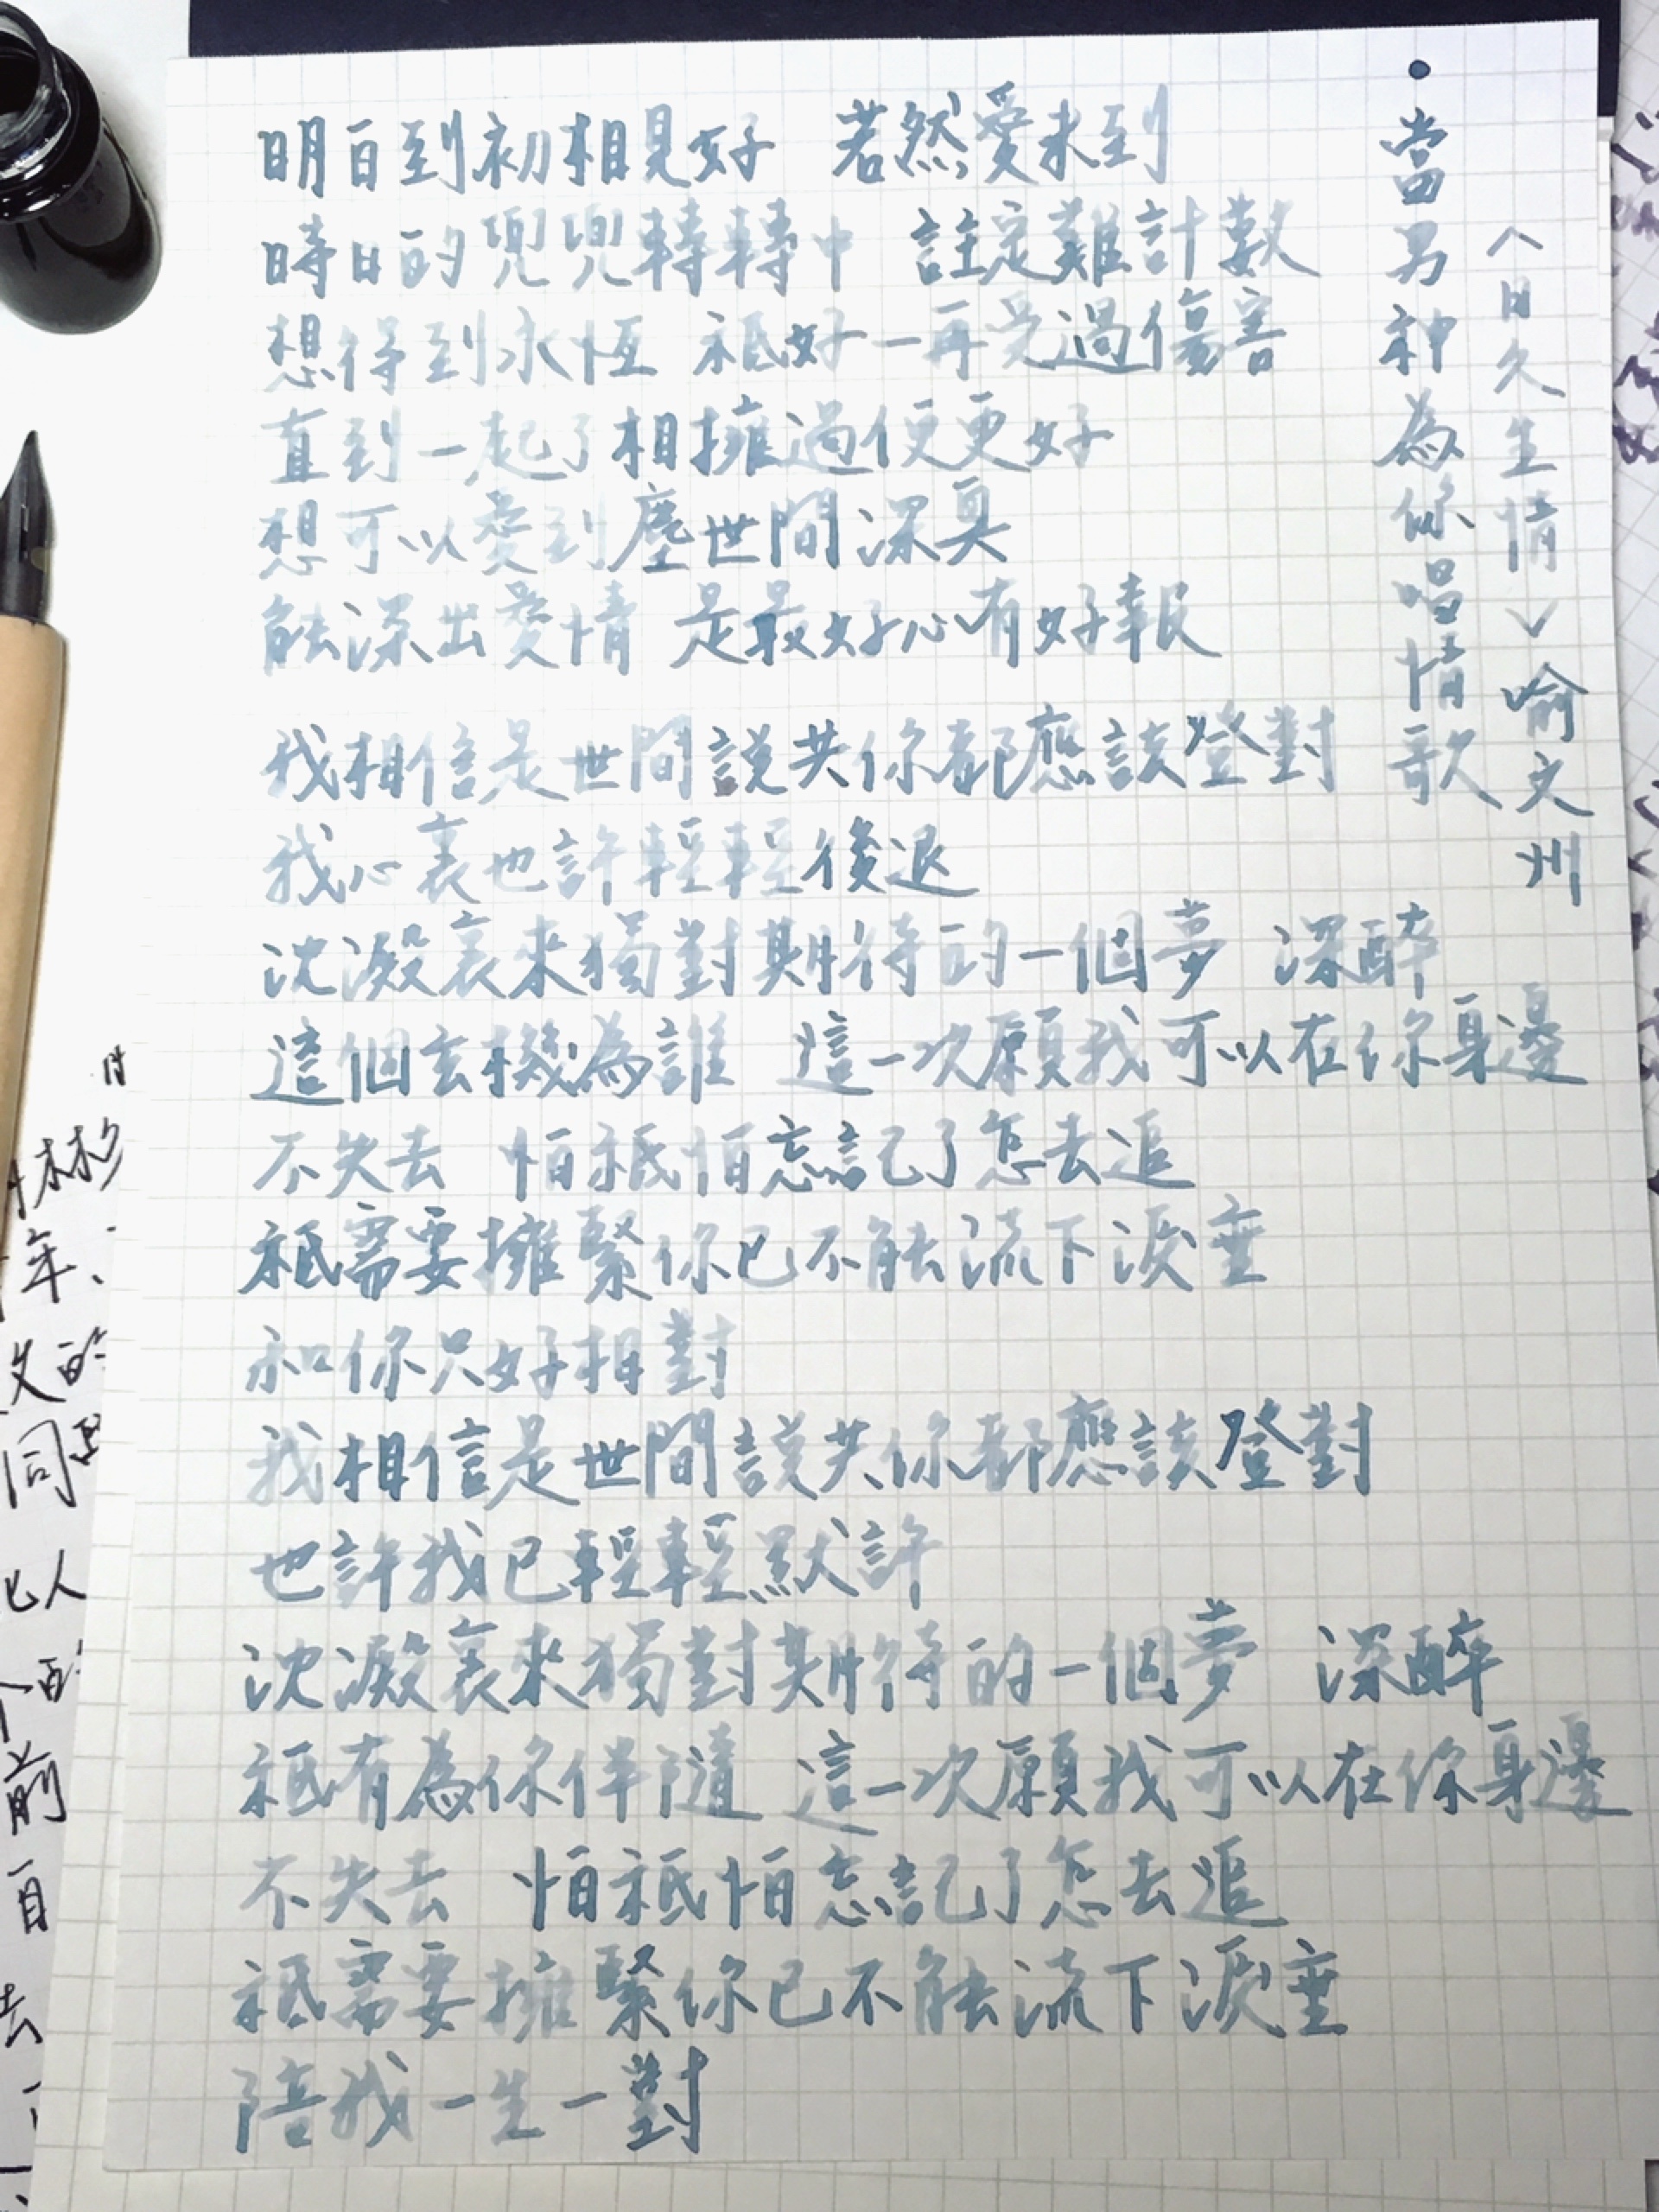 •當男神為你唱情歌
〈日久生情〉喻文州
明白到初相見好 若然愛未到
時日的兜兜轉轉中 註定難計數
想得到永恆 祗好一再受過傷害
直到一起了相擁過便更好
想可以愛到塵世間深奧
能深出愛情 是最好心有好報
我相信是世間說共你都應該登對
我心裏也許輕輕後退
沈澱裏來獨對期待的一個夢 深醉
這個玄機為誰 這一次願我可以在你身邊
不失去 怕祗怕忘記了怎去追
祗需要擁緊你已不能流下淚垂
和你只好相對
我相信是世間說共你都應該登對
也許我已輕輕默許
沈澱裏來獨對期待的一個夢 深醉
祗有為你伴隨 這一次願我可以在你身邊
不失去 怕祗怕忘記了怎去追
祗需要擁緊你已不能流下淚垂
陪我一生一對
年、
文的
同
人
前
自
去